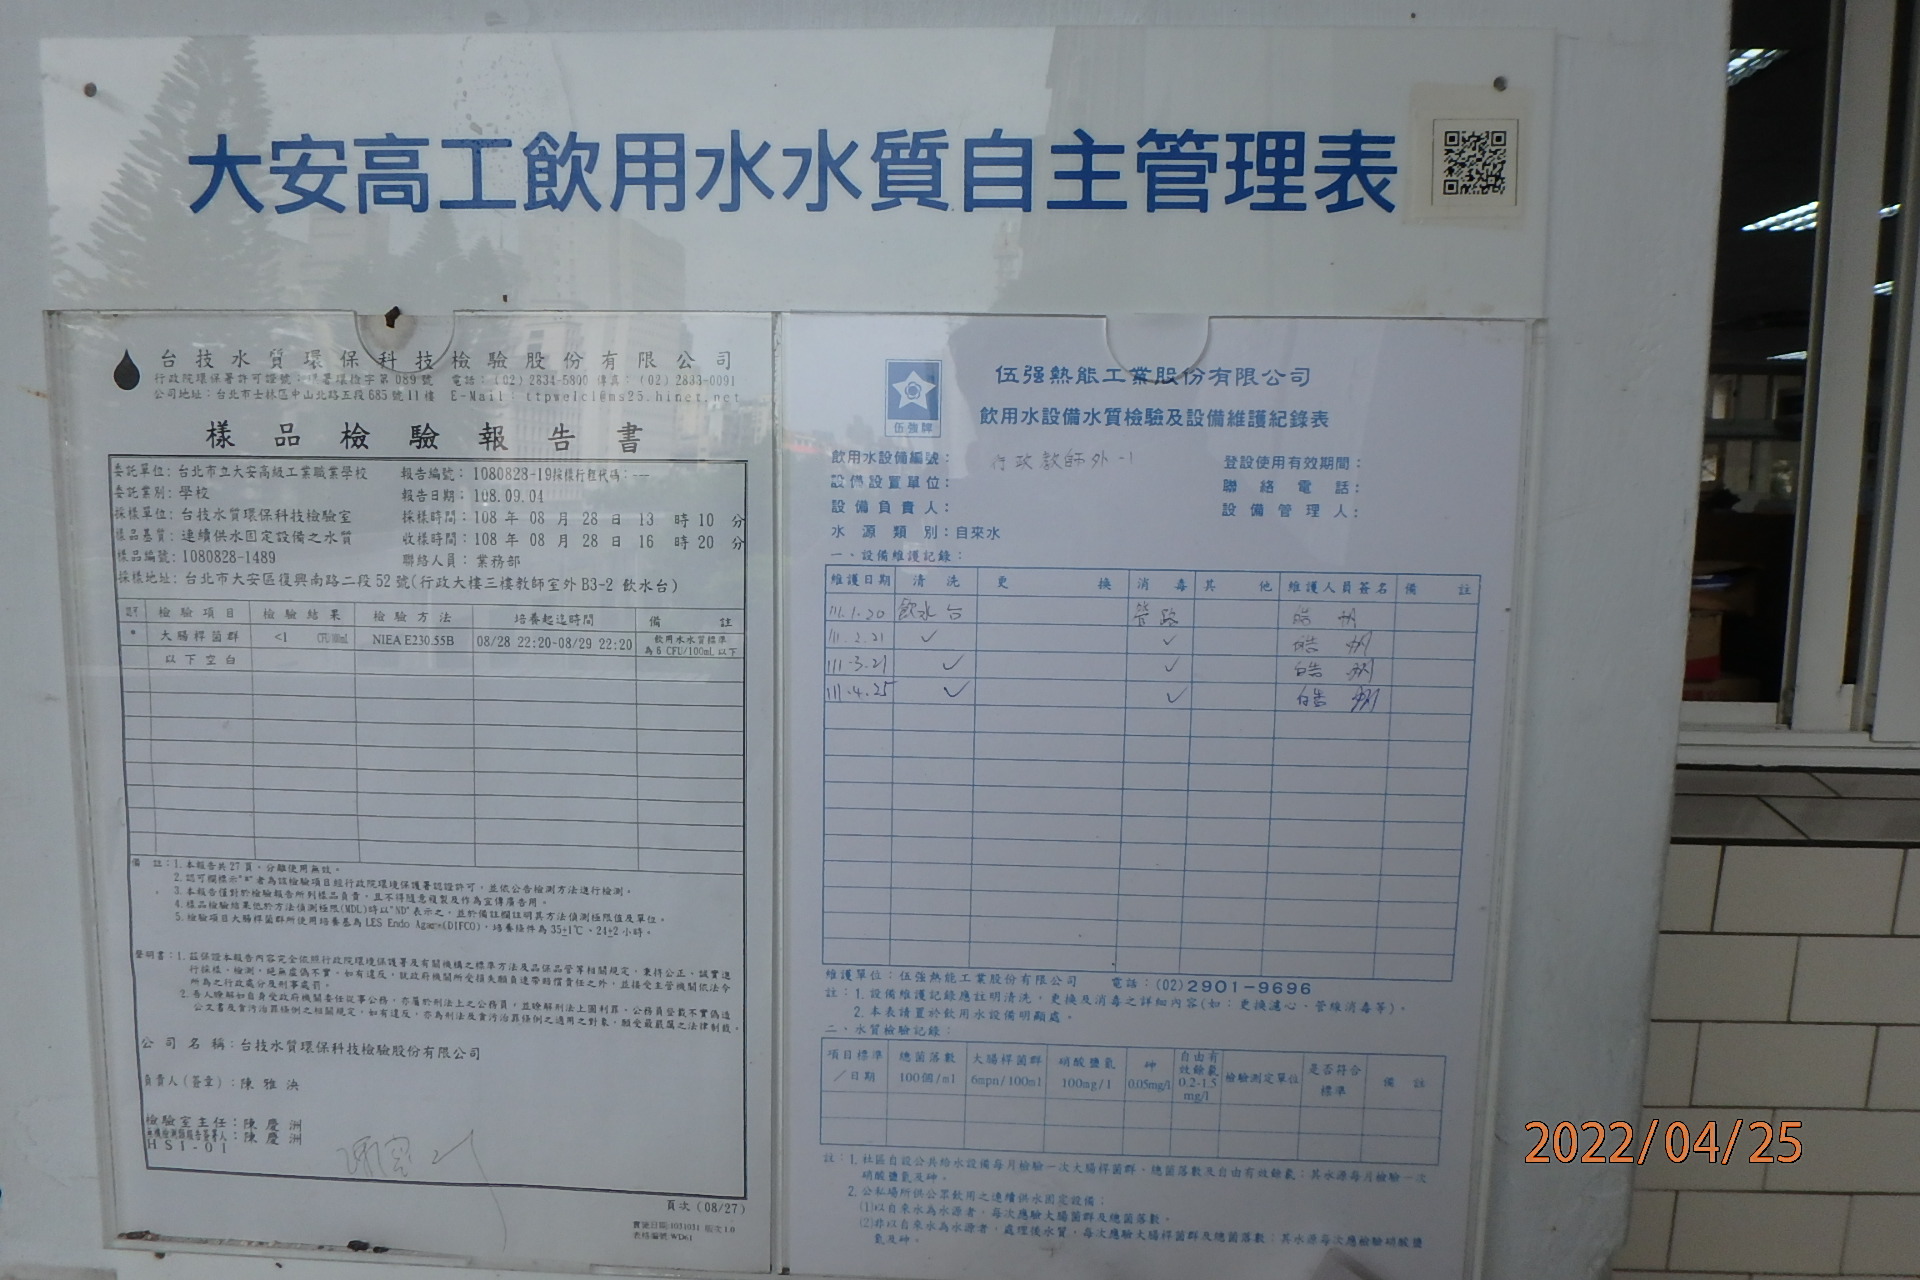 大安高工飲用水水質自主管理表
台技水質環保科技檢驗股份有限公司
行政院環保署許可證號：環署環檢字第089號 電話：(02) 2834-5800 傳真：(02) 2833-0091
公司地址：台北市士林區中山北路五段685號11樓 E-Mail: ttpwelcl@ms25.hinet.net
樣品檢驗報告書
委託單位：台北市立大安高級工業職業學校 報告編號：1080828-19採樣行程代碼：--
委託業別：學校 報告日期：108.09.04
採樣單位：台技水質環保科技檢驗室 採樣時間：108 年 08 月 28 日 13 時 10 分
樣品基質：連續供水固定設備之水質 收樣時間：108 年 08 月 28 日 16 時 20 分
樣品編號：1080828-1489 聯絡人員：業務部
採樣地址：台北市大安區復興南路二段52號(行政大樓三樓教師室外B3-2 飲水台)
認可 檢驗項目 檢驗結果 檢驗方法 培養起迄時間 備註
* 大腸桿菌群 <1 CFU/100mL NIEA E230.55B 08/28 22:20~08/29 22:20 飲用水水質標準
為6 CFU/100mL以下
以下空白
備 註：1.本報告共27頁，分離使用無效。
2.認可欄標示"*"者為該檢驗項目經行政院環境保護署認證許可，並依公告檢測方法進行檢測。
3.本報告僅對於檢驗報告所列樣品負責，且不得隨意複製及作為宣傳廣告用。
4.樣品檢驗結果低於方法偵測極限(MDL)時以"ND"表示之，並於備註欄註明其方法偵測極限值及單位。
5.檢驗項目大腸桿菌群所使用培養基為LES Endo Agar(DIFCO)，培養條件為35±1℃、24±2小時。
聲明書：1.茲保證本報告內容完全依照行政院環境保護署及有關機構之標準方法及品保品管等相關規定，秉持公正、誠實進
行採樣、檢測。絕無虛偽不實，如有違反，就政府機關所受損失願負連帶賠償責任之外，並接受主管機關依法令
所為之行政處分及刑事處罰。
2.吾人瞭解如自身受政府機關委任從事公務，亦屬於刑法上之公務員，並瞭解刑法上圖利罪、公務員登載不實偽造
公文書及貪污治罪條例之相關規定，如有違反，亦為刑法及貪污治罪條例之適用之對象，願受最嚴厲之法律制裁。
公司名稱：台技水質環保科技檢驗股份有限公司
負責人(簽章)：陳雅泱
檢驗室主任：陳慶洲
無機檢測類報告簽署人：陳慶洲
HSI-01
頁次 (08/27)
實施日期:1031031 版次1.0
表格編號 WD61
伍強牌
伍强熱能工業股份有限公司
飲用水設備水質檢驗及設備維護紀錄表
飲用水設備編號： 行政教師外-1 登設使用有效期間：
設備設置單位： 聯絡電話：
設備負責人： 設備管理人：
水源類別：自來水
一、設備維護記錄：
維護日期 清洗 更換 消毒 其他 維護人員簽名 備註
111.1.20 飲水台 管路
111.2.21 ✓ ✓
111.3.21 ✓ ✓
111.4.25 ✓ ✓
維護單位：伍強熱能工業股份有限公司 電話：(02)2901-9696
註：1.設備維護記錄應註明清洗，更換及消毒之詳細內容(如：更換濾心、管線消毒等)。
2.本表請置於飲用水設備明顯處。
二、水質檢驗記錄：
項目標準／日期 總菌落數100個/ml 大腸桿菌群6mpn/100ml 硝酸鹽氮100mg/l 砷0.05mg/l 自由有效餘氯0.2-1.5mg/l 檢驗測定單位 是否符合標準 備註
註：1.社區自設公共給水設備每月檢驗一次大腸桿菌群、總菌落數及自由有效餘氯；其水源每月檢驗一次
硝酸鹽氮及砷。
2.公私場所供公眾飲用之連續供水固定設備：
(1)以自來水為水源者，每次應驗大腸菌群及總菌落數。
(2)非以自來水為水源者，處理後水質，每次應驗大腸桿菌群及總菌落數；其水源每次應檢驗硝酸鹽
氮及砷。
2022/04/25